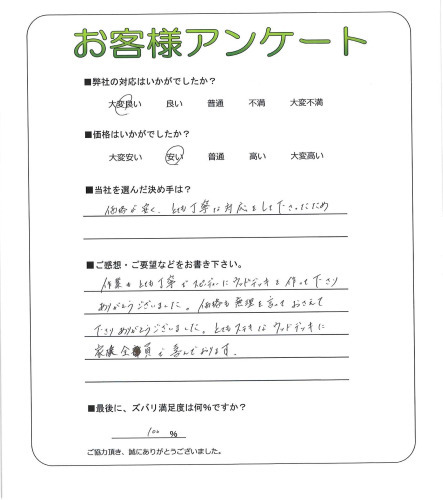 お客様アンケート
■弊社の対応はいかがでしたか？
大変良い 良い 普通 不満 大変不満
■価格はいかがでしたか？
大変安い 安い 普通 高い 大変高い
■当社を選んだ決め手は？
価格が安く、とても丁寧な対応をして下さったため
■ご感想・ご要望などをお書き下さい。
作業もとても丁寧でスピーディーにウッドデッキを作って下さり
ありがとうございました。価格も無理を言っておさえて
下さりありがとうございました。とてもステキなウッドデッキに
家族全員で喜んでおります。
■最後に、ズバリ満足度は何%ですか？
100 %
ご協力頂き、誠にありがとうございました。